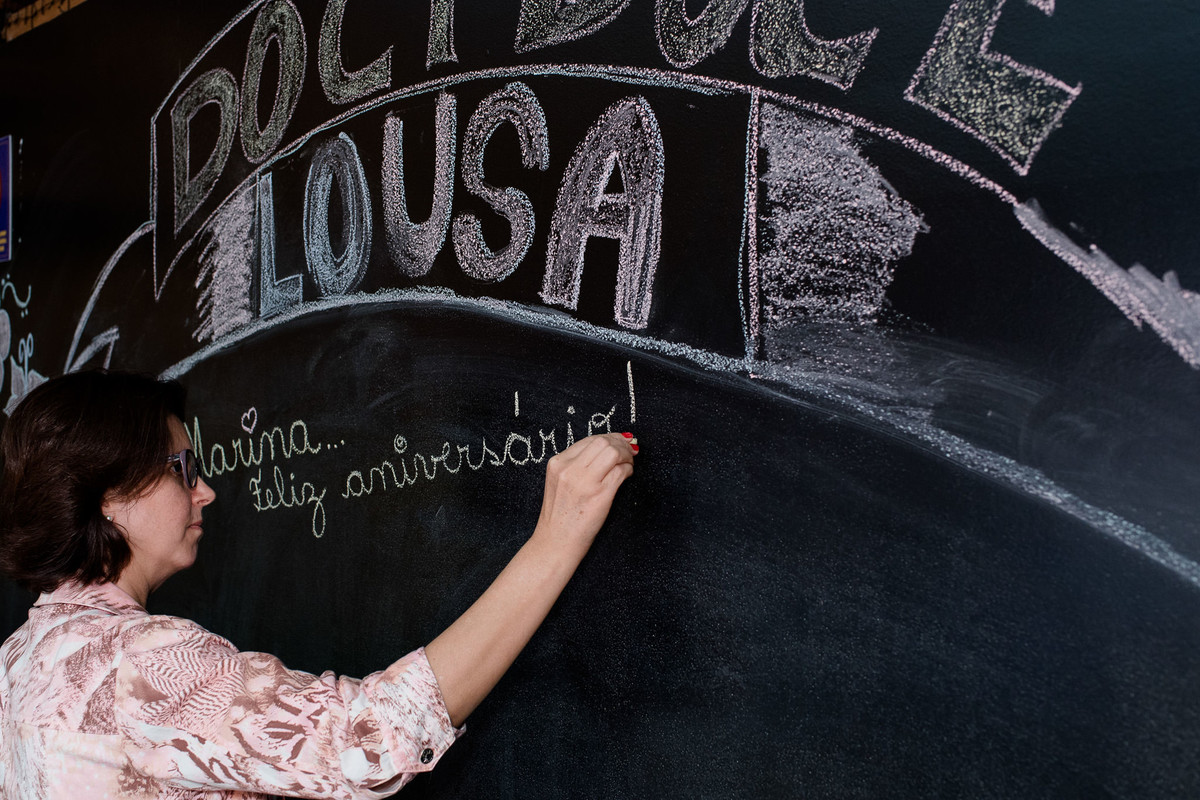 DOCE
LOUSA
Marina...
Feliz aniversário!